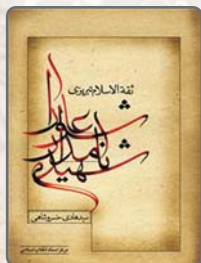 ثقة الاسلام تبریزی
شهیدی نامدار
عاشورا
سیدهادی خسروشاهی
مرکز اسناد انقلاب اسلامی